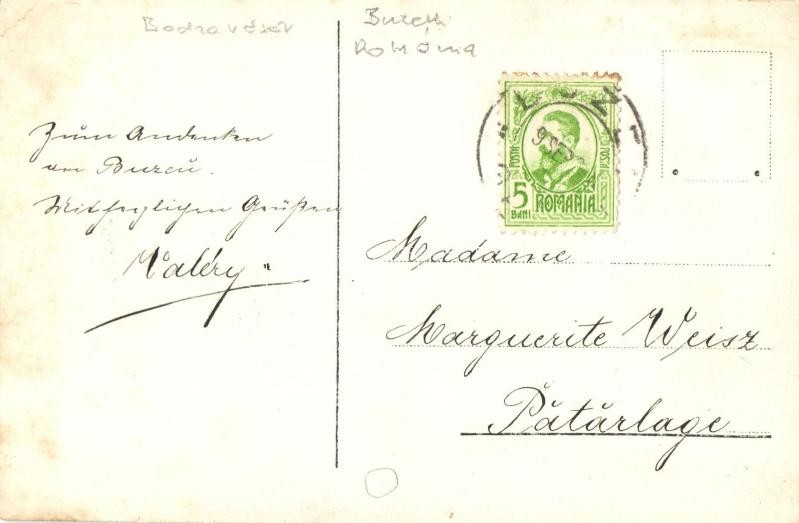 Buzeu
România
Zum Andenken
an Buzeu.
Mit herzlichen Grüßen
Valéry
9 SEP
POSTA
5
BANI
ROMANIA
Madame
Marguerite Weisz
Pătărlage